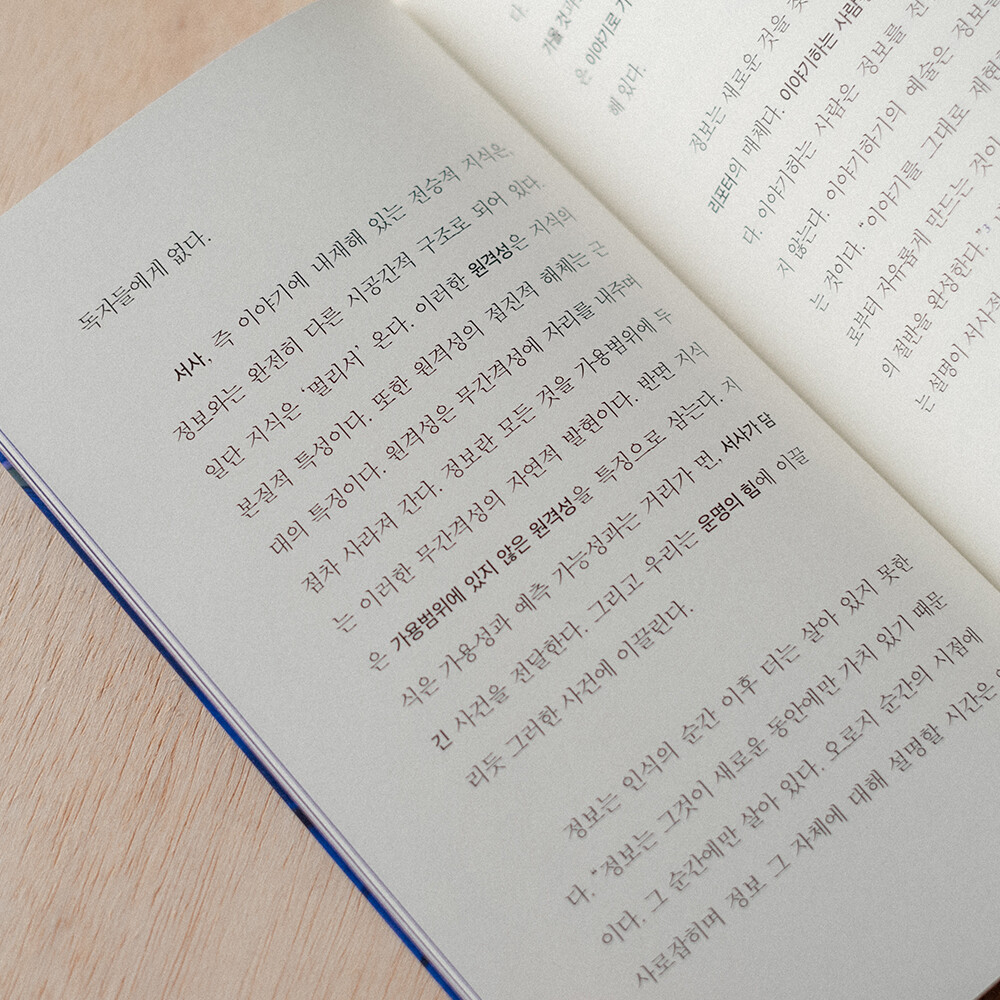 독자들에게 없다.
서사, 즉 이야기에 내재해 있는 전승적 지식은,
정보와는 완전히 다른 시공간적 구조로 되어 있다.
일단 지식은 ‘멀리서’ 온다. 이러한 원격성은 지식의
본질적 특성이다. 또한 원격성의 점진적 해체는 근
대의 특징이다. 원격성은 무간격성에 자리를 내주며
점차 사라져 간다. 정보란 모든 것을 가용범위에 두
는 이러한 무간격성의 자연적 발현이다. 반면 지식
은 가용범위에 있지 않은 원격성을 특징으로 삼는다. 지
식은 가용성과 예측 가능성과는 거리가 먼, 서사가 담
긴 사건을 전달한다. 그리고 우리는 운명의 힘에 이끌
리듯 그러한 사건에 이끌린다.
정보는 인식의 순간 이후 더는 살아 있지 못한
다. “정보는 그것이 새로운 동안에만 가치 있기 때문
이다. 그 순간에만 살아 있다. 오로지 순간의 시점에
사로잡히며 정보 그 자체에 대해 설명할 시간은
다.
가올 것과
은 이야기로
해 있다.
정보는 새로운 것을
리포터의 매체다. 이야기하는 사람
다. 이야기하는 사람은 정보를 전
지 않는다. 이야기하기의 예술은 정보
는 것이다. “이야기를 그대로 재현
로부터 자유롭게 만드는 것이
의 절반을 완성한다.”3
는 설명이 서사적